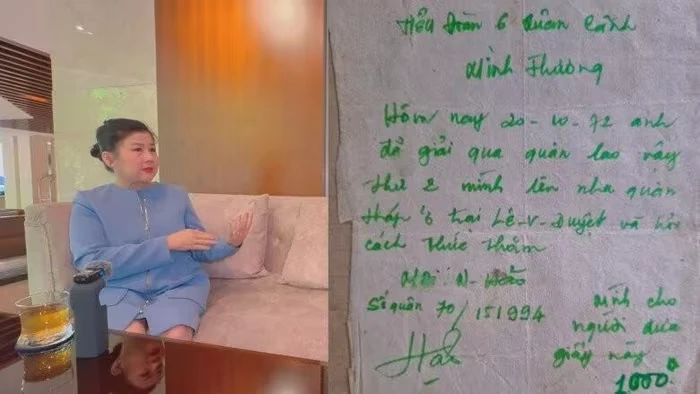 Tiểu Đoàn 6 Quân Cảnh
Mình Thương
Hôm nay 20-10-72 anh
đã giải qua quân lao vậy
thứ 2 mình lên nha quân
Pháp ỡ trại Lê-V-Duyệt và hỏi
cách thức thăm
Hảo
Số quân 70/151994
mình cho
người đưa
giấy này
1000đ